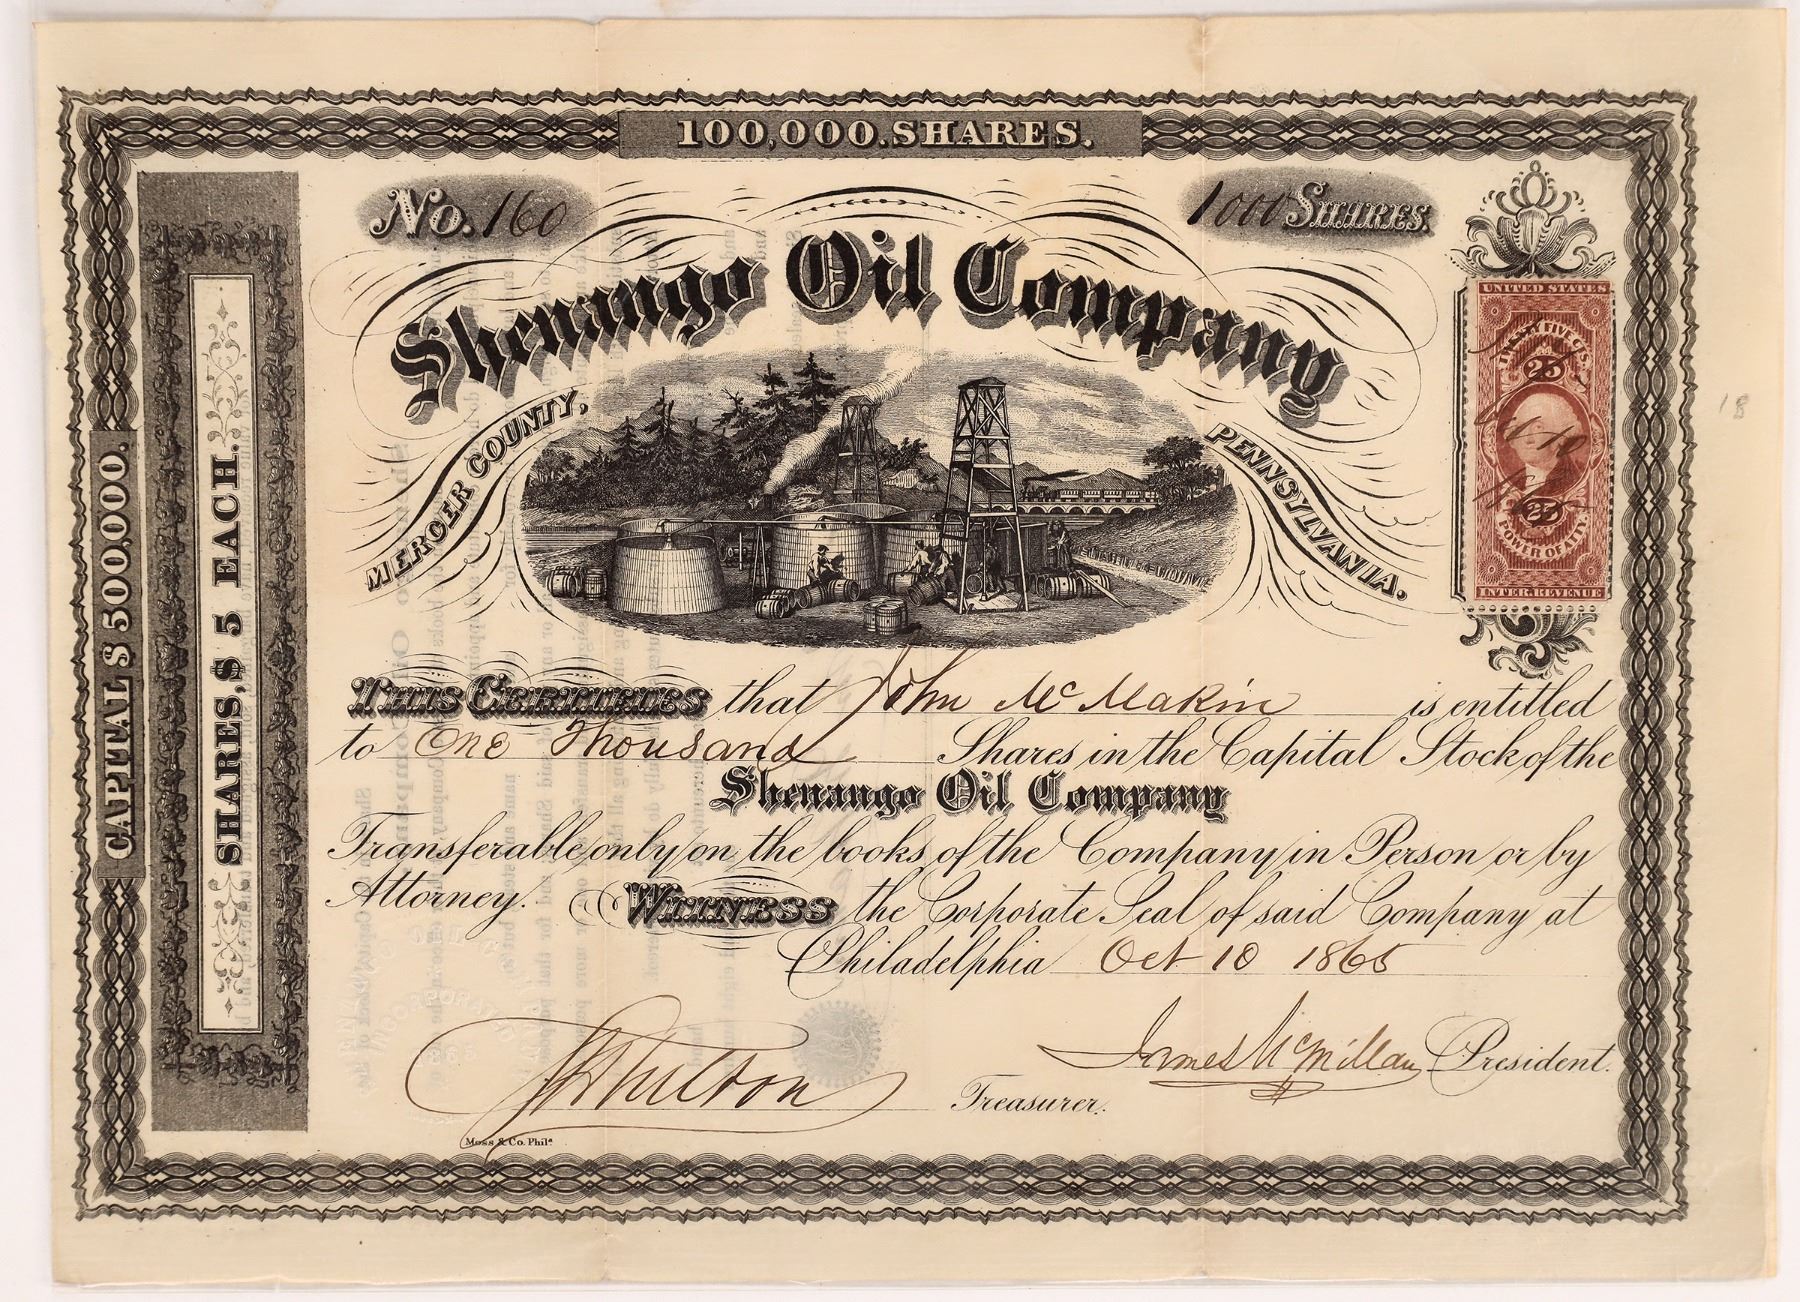 100,000. SHARES.
No. 160
1000 SHARES.
Shenango Oil Company
MERCER COUNTY,
PENNSYLVANIA.
CAPITAL $ 500,000.
SHARES, $ 5 EACH.
UNITED STATES
TWENTY FIVE C'S.
25
Oct 10
1865
25
POWER OF ATT'Y.
INTER. REVENUE
18
THIS CERTIFIES that John McMakin is entitled
to One Thousand Shares in the Capital Stock of the
Shenango Oil Company
Transferable only on the books of the Company in Person or by
Attorney. WITNESS the Corporate Seal of said Company at
Philadelphia Oct 10 1865
James McMillan President.
Fulton Treasurer.
Moss & Co. Phila